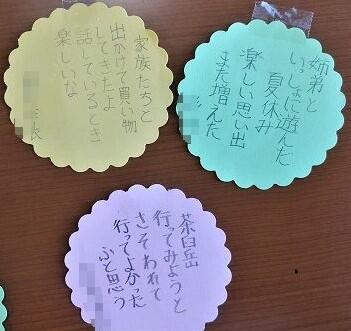 家族たちと
出かけて買い物
してきたよ
話しているとき
楽しいな
姉弟と
いっしょに遊んだ
夏休み
楽しい思い出
また増えた
茶臼岳
行ってみようと
さそわれて
行ってよかった
ふと思う